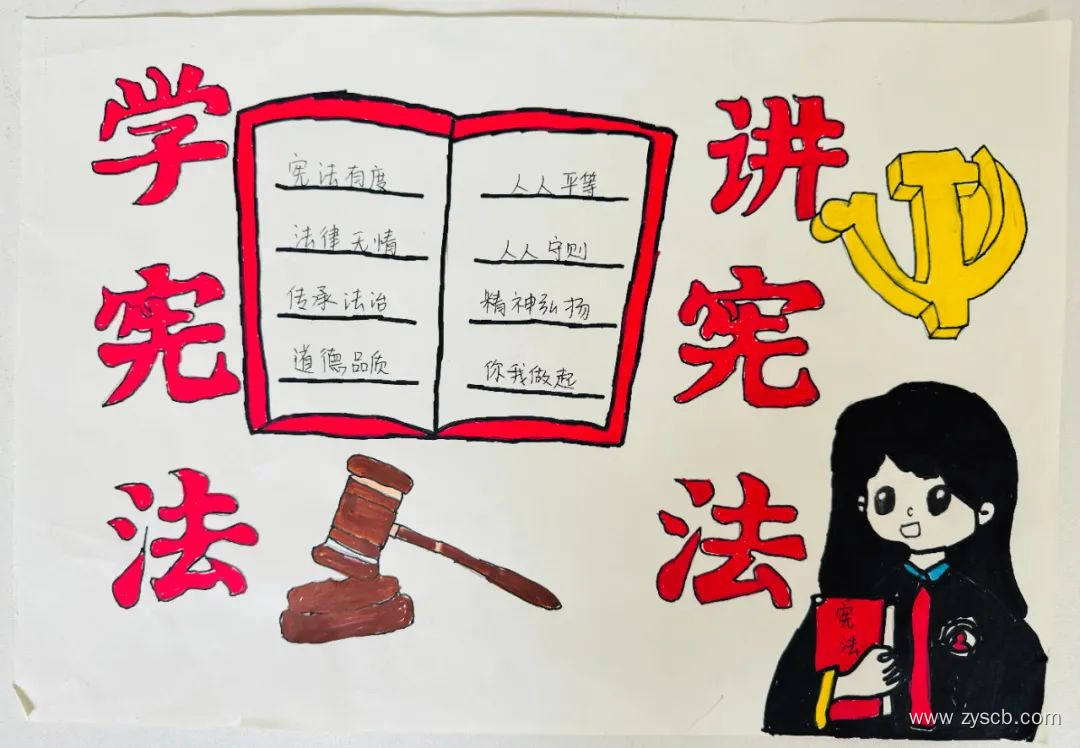 学宪法
讲宪法
宪法有度
法律无情
传承法治
道德品质
人人平等
人人守则
精神弘扬
你我做起
宪法
www zyscb.com